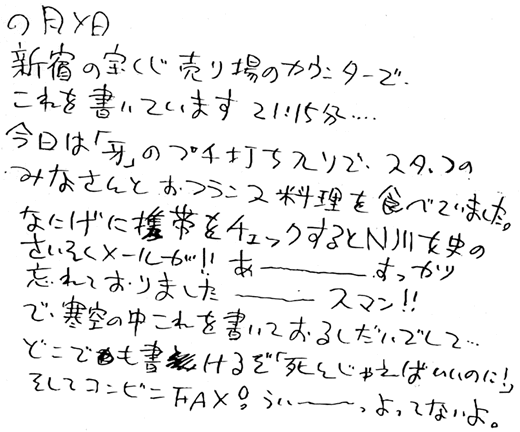 〇月×日
新宿の宝くじ売り場のカウンターで、
これを書いています 21:15分‥‥
今日は「牙」のプチ打ち入りで、スタッフの
みなさんとおフランス料理を食べていました。
なにげに携帯をチェックするとN川女史の
さいそくメールが!! あ―――すっかり
忘れておりました ――― スマン!!
で、寒空の中これを書いておるしだいでして…
どこでも書けるぞ「死んじゃえばいいのに!」
そしてコンビニFAX!! うぃ―――っよってないよ。